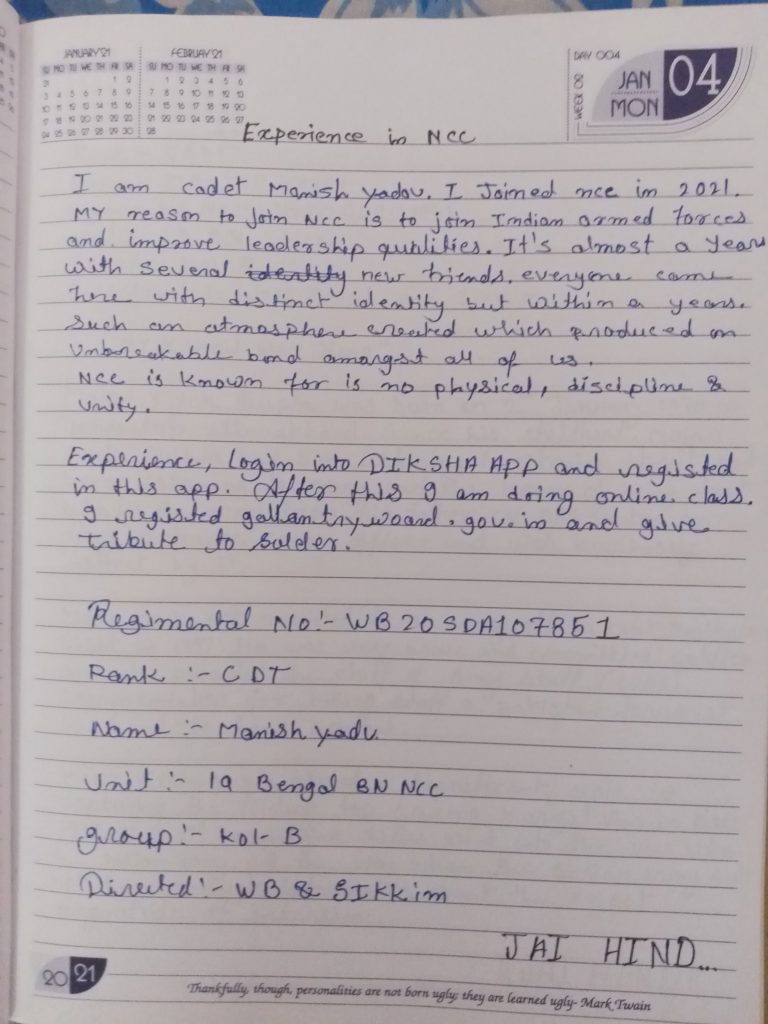 JANUARY'21
SU MO TU WE TH FR SA
31 1 2
3 4 5 6 7 8 9
10 11 12 13 14 15 16
17 18 19 20 21 22 23
24 25 26 27 28 29 30
FEBRUAY'21
SU MO TU WE TH FR SA
1 2 3 4 5 6
7 8 9 10 11 12 13
14 15 16 17 18 19 20
21 22 23 24 25 26 27
28
DAY 004
WEEK 02
JAN
MON
04
Experience in NCC
I am cadet Manish yadav. I Joined ncc in 2021.
MY reason to join NCC is to join Indian armed forces
and improve leadership qualities. It's almost a years
with several identity new friends. everyone came
here with distinct identity but within a years.
Such an atmosphere created which produced an
Unbreakable bond amongst all of us.
NCC is known for is no physical, discipline &
Unity.
Experience, Login into DIKSHA APP and registed
in this app. After this I am doing online class.
I registed gallantry woard. gov. in and give
tribute to solder.
Regimental No:- WB20SDA107851
Rank :- CDT
Name :- Manish yadv.
Unit :- 19 Bengal BN NCC
group:- Kol- B
Directed:- WB & SIKKim
JAI HIND...
20 21
Thankfully, though, personalities are not born ugly; they are learned ugly- Mark Twain